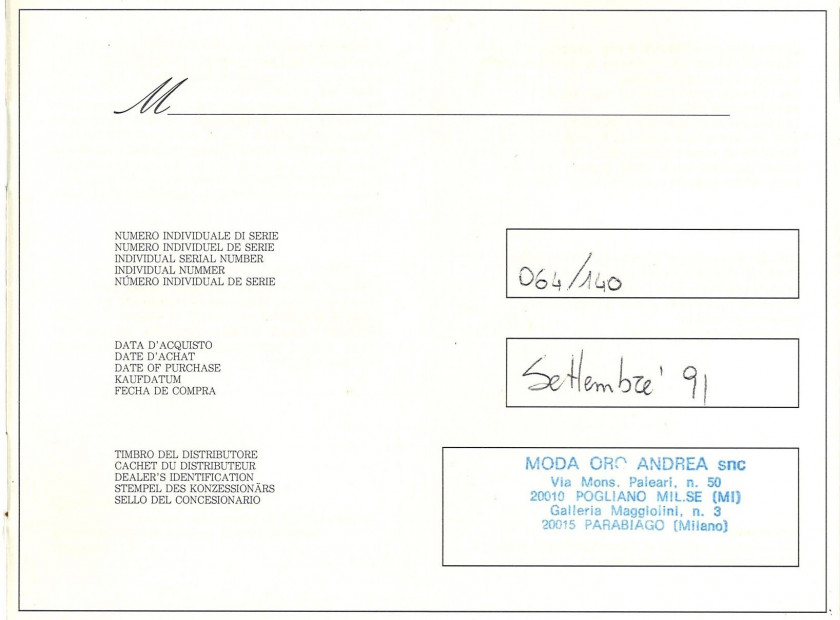 M
NUMERO INDIVIDUALE DI SERIE
NUMERO INDIVIDUEL DE SERIE
INDIVIDUAL SERIAL NUMBER
INDIVIDUAL NUMMER
NÚMERO INDIVIDUAL DE SERIE
064/140
DATA D'ACQUISTO
DATE D'ACHAT
DATE OF PURCHASE
KAUFDATUM
FECHA DE COMPRA
Settembre' 91
TIMBRO DEL DISTRIBUTORE
CACHET DU DISTRIBUTEUR
DEALER'S IDENTIFICATION
STEMPEL DES KONZESSIONÄRS
SELLO DEL CONCESIONARIO
MODA ORO ANDREA snc
Via Mons. Paleari, n. 50
20010 POGLIANO MIL.SE (MI)
Galleria Maggiolini, n. 3
20015 PARABIAGO (Milano)